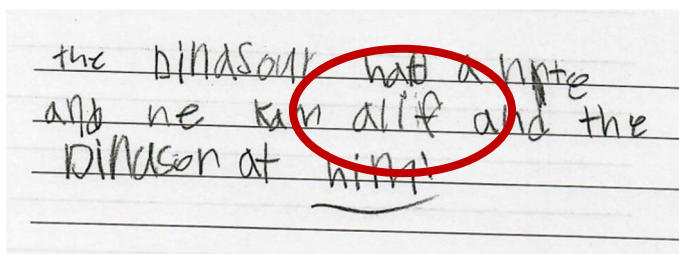 the Dinasour hatt a hpte
and he kam alif and the
Dinason at him!